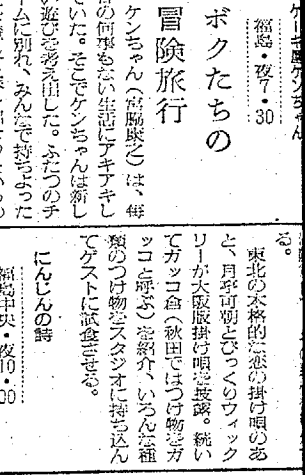 ケーキ屋ケンちゃん
福島・夜7・30
ボクたちの
冒険旅行
ケンちゃん（宮脇康之）は、毎
日の何事もない生活にアキアキし
ていた。そこでケンちゃんは新し
い遊びを考え出した。ふたつのチ
ームに別れ、みんなで持ちよった
る。
東北の本格的な恋の掛け唄のあ
と、月亭可朝とびっくりウィック
リーが大阪版掛け唄を披露。続い
てガッコ倉（秋田ではつけ物をガ
ッコと呼ぶ）を紹介、いろんな種
類のつけ物をスタジオに持ち込ん
でゲストに試食させる。
にんじんの詩
福島中央・夜10・00